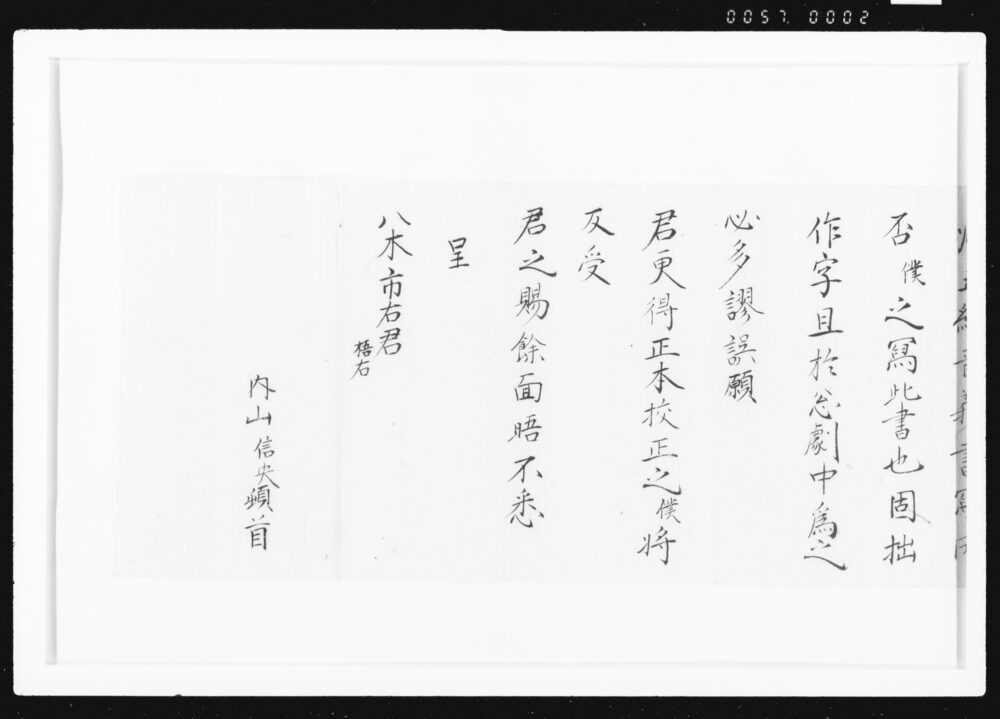 0057.0002
否僕之寫此書也固拙
作字且於怱劇中爲之
必多謬誤願
君更得正本挍正之僕将
反受
君之賜餘面晤不悉
呈
八木市右君
梧右
内山信央頓首